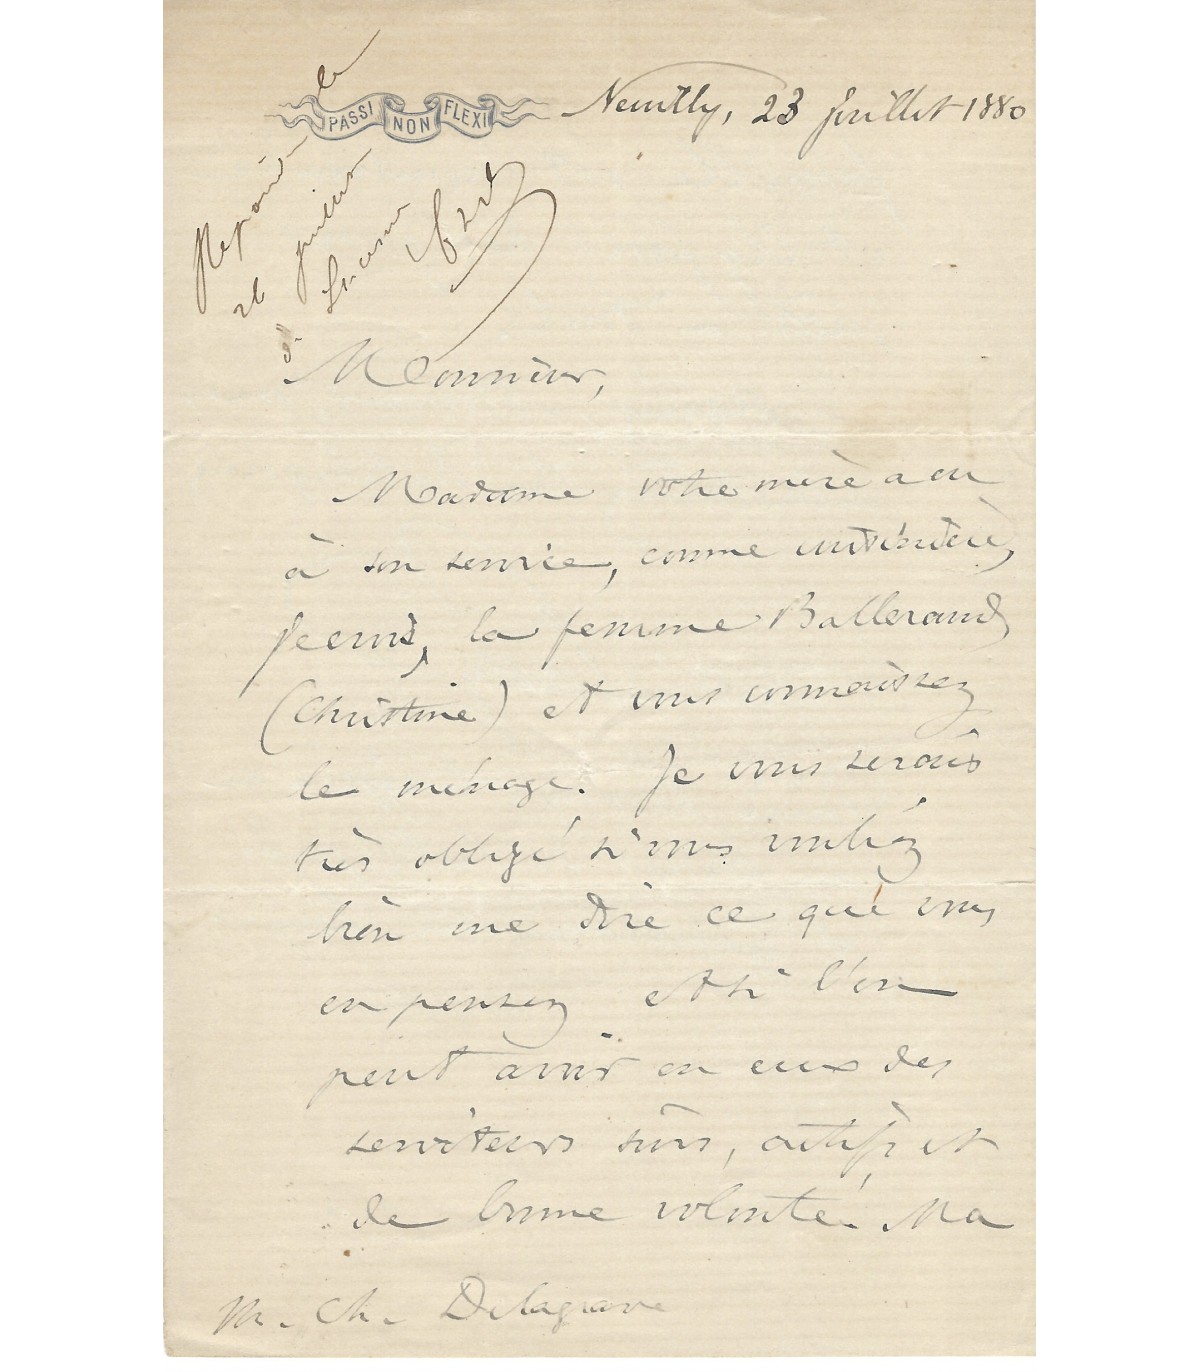 PASSI NON FLEXI
Neuilly, 23 Juillet 1880
le
26 juillet
Monsieur,
Madame votre mère a eu
à son service, comme cuisinière,
la femme Ballerand,
(Christine) et vous connaissez
le ménage. Je vous serais
très obligé si vous vouliez
bien me dire ce que vous
en pensez et si l'on
peut avoir en eux des
serviteurs sûrs, actifs et
de bonne volonté. Ma
M. Ch. Delagrave